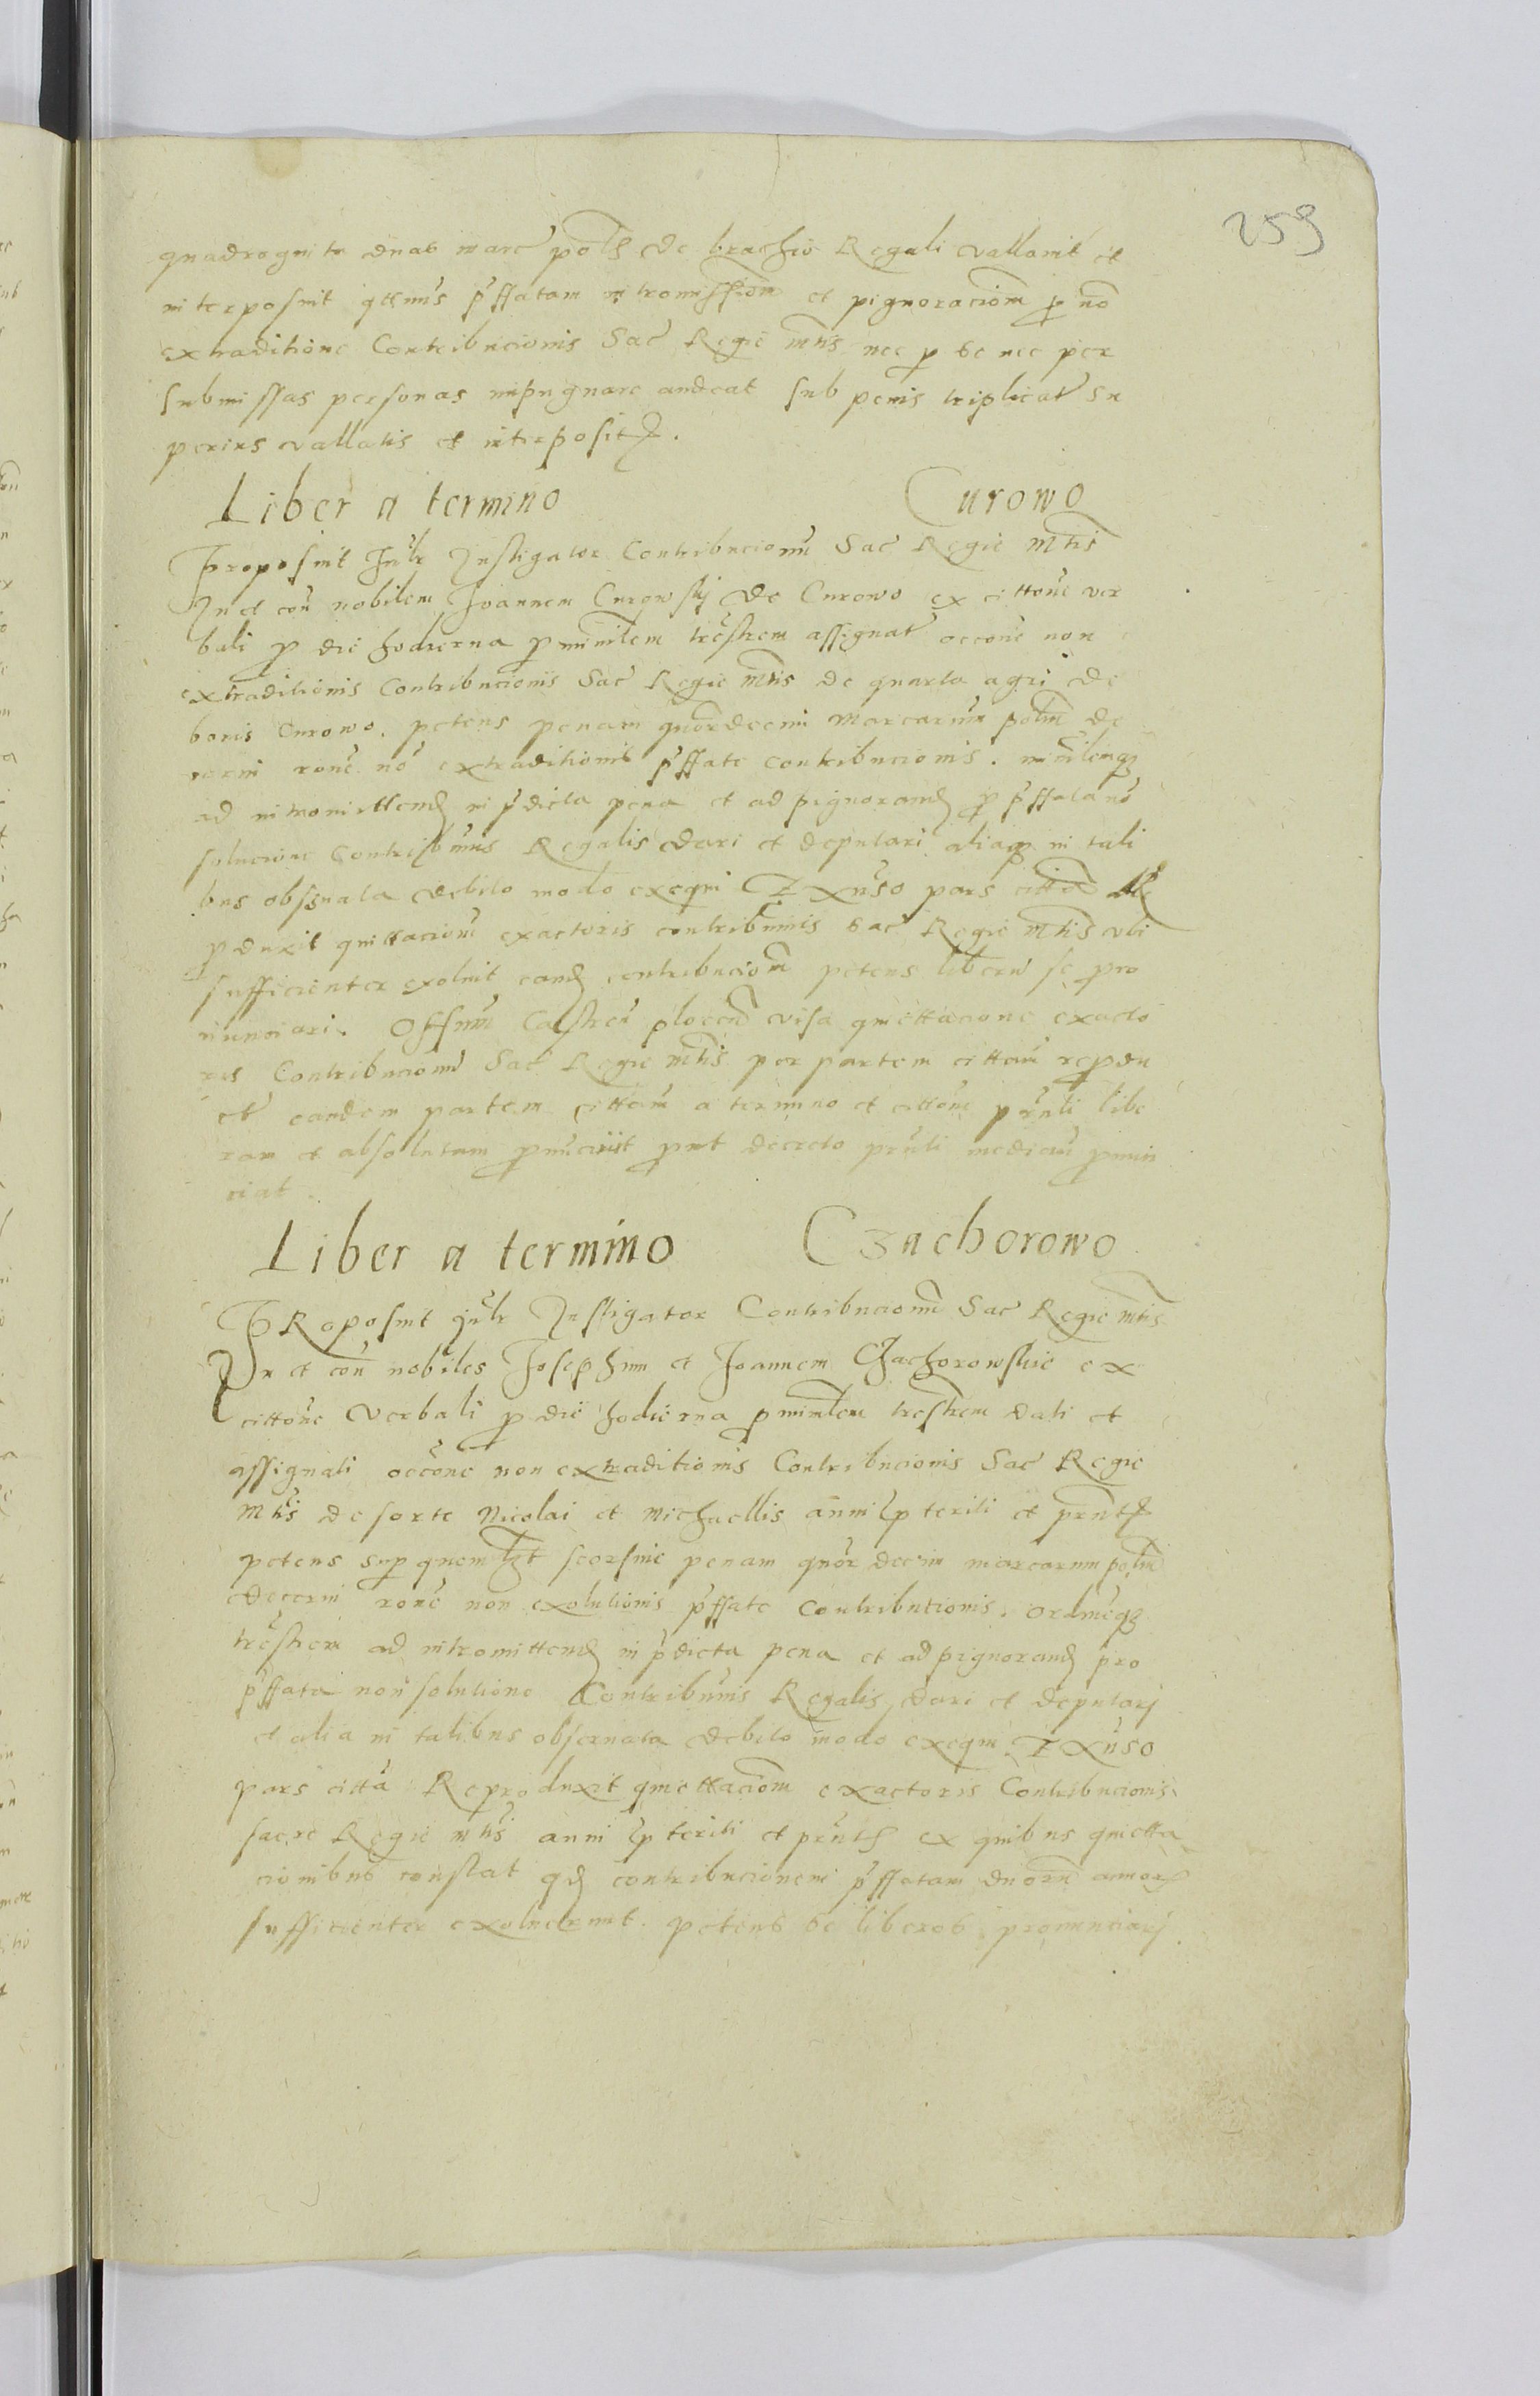 259
quadraginta duas marc̃ pol̃ de brachio Regali vallavit et
interposuit q̃tenus p̃ffatam intromissiom̃ et pignoraciom̃ p nõ
extraditione Contribucionis Sac̃ Regie mtis nec p se nec per
submissas personas inpugnare audeat sub penis triplicat̃ su
perius vallatis et interposit.
Liber a termino Curowo
Proposuit Jn̄lr Instigator Contribucionũ Sac̃ Regie Mtis
In et coñ nobilem Joannem Curowskj de Curowo ex cittoñe ver
bali p die hodierna p minilem trẽstrem assignat̃ occoñe non
extraditionis Contribucionis Sac̃ Regie Mtis de quarta agri de
bonis Curowo. petens penam quordecim Marcarum polm̃ de
cerni roñe nõ extraditionis p̃ffate contribucionis. minilemq
ad intromittend in p̃dicta pena et ad pignorand p p̃ffata nõ
solucione Contribũnis Regalis dari et deputari aliaq in tali
bus obsẽruata debito modo exequi Ex aduso pars citta
p duxit quittacionẽ exactoris contribũnis Sac̃ Regie Mtis vbi
sufficienter exoluit eand contribuciom̃ petens liberũ se pro
nunciari. Offium Castreñ plocen̄ visa quittacione exacto
ris Contribucionũ Sac̃ Regie mtis per partem cittam̃ repdu
ct̃ eandem partem cittam̃ a termino et cittoñe pñti libe
ram et absolutam pnunciat put decreto pñti mediañ pnun
ciat.
Liber a termino Czachorowo
PRoposuit Jn̄lr Instigator Contribucionũ Sac̃ Regie mtis
In et coñ nobiles Josephum et Joannem Czachorowskie ex
cittoñe verbali p die hodierna p minilem trestrem dati et
assignati occoñe non extraditionis Contribucionis Sac̃ Regie
Mtis de sorte Nicolai et Michaellis anni p teriti et pñt
petens sup quemlbt seorsine penam quor decim marcarum polm̃
decerni roñe non exolutionis p̃ffate Contributionis. ordineq
trẽstrem ad intromittend in p̃dicta pena et ad pignorand pro
p̃ffata noñ solutione Contribũnis Regalis dari et deputarj
et alia in talibus obseruata debito modo exequi Ex aduso
pars citta Reproduxit quiettaciom̃ exactoris Contribucionis
sacre Regie mtis anni p teriti et pñtis ex quibus quietta
cionibus constat qd contribucionem p̃ffatam duorũ annor
sufficienter exoluerunt. petens se liberos pronunciarj